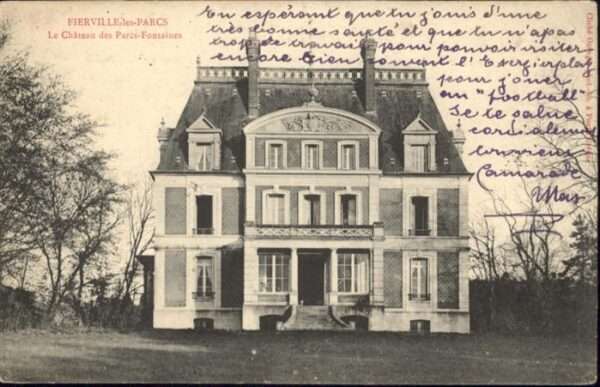 FIERVILLE-les-PARCS
Le Château des Parcs-Fontaines
En espérant que tu jouis d'une
très bonne santé et que tu n'as pas
trop de travail pour pouvoir visiter
encore bien souvent l'
pour jouer
au "football"
Je te salue
cordialement
ton vieux
Camarade